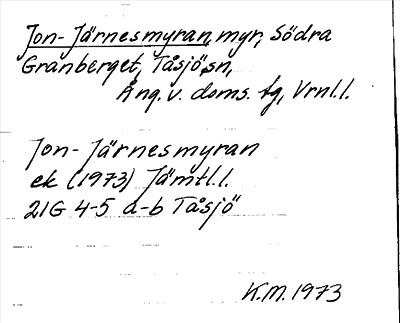 Jon-Järnesmyran, myr, Södra
Granberget, Tåsjö sn,
Ång. v. doms. tg, Vrnl.l.
Jon-Järnesmyran
ek (1973) Jämtl.l.
21G 4-5 a-b Tåsjö
K.M. 1973